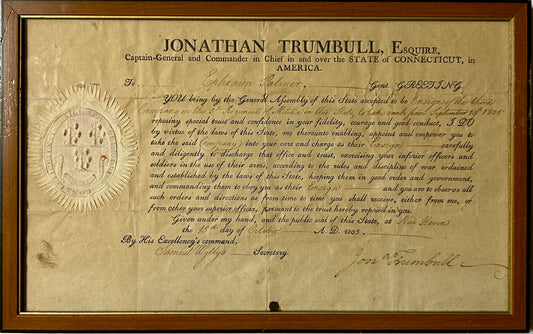 JONATHAN TRUMBULL, Esquire,
Captain-General and Commander in Chief in and over the STATE of CONNECTICUT, in
AMERICA.
To Ephraim Palmer Gent. GREETING.
YOU being by the General Assembly of this State accepted to be Ensign of the Third
Company in the Regiment of Militia in this State, to take rank from September 19th 1805
reposing special trust and confidence in your fidelity, courage and good conduct, I DO
by virtue of the laws of this State, me thereunto enabling, appoint and empower you to
take the said Company into your care and charge as their Ensign carefully
and diligently to discharge that office and trust, exercising your inferior officers and
soldiers in the use of their arms, according to the rules and discipline of war ordained
and established by the laws of this State, keeping them in good order and government,
and commanding them to obey you as their Ensign and you to observe all
such orders and directions as from time to time you shall receive, either from me, or
from other your superior officer, pursuant to the trust hereby reposed in you.
Given under my hand, and the public seal of this State, at New Haven
the 18th day of October A. D. 1805.
By His Excellency's command,
Samuel Wyllys Secretary.
Jon Trumbull